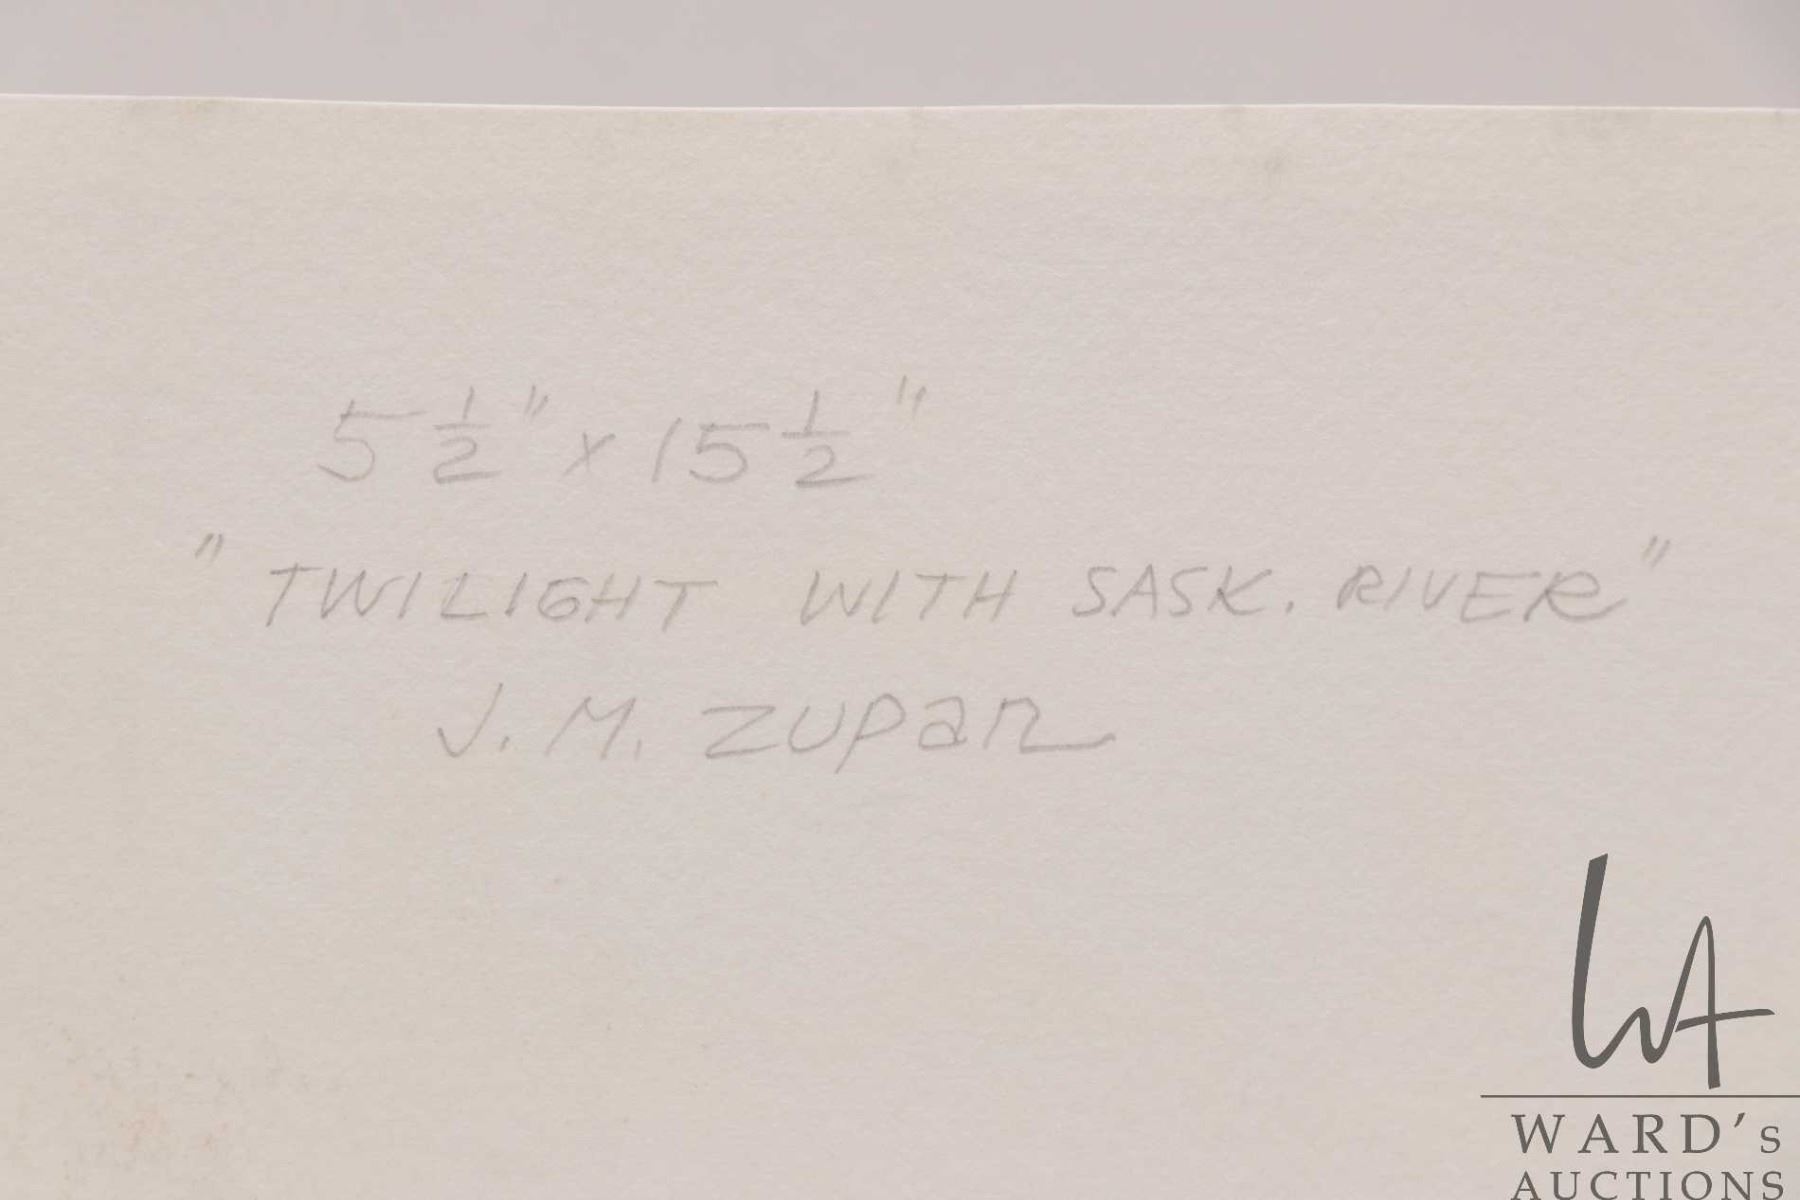 5 1/2" x 15 1/2"
"TWILIGHT WITH SASK. RIVER"
J. M. ZUPan
WA
WARD's
AUCTIONS